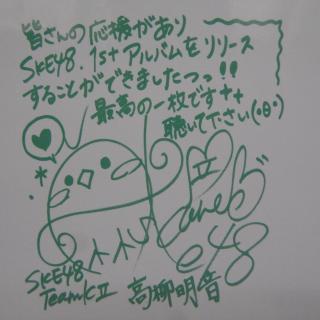 皆さんの応援があり
SKE48.1stアルバムをリリース
することができましたっっ!!
最高の一枚です++
聴いて下さい(・θ・)
SKE48
TeamKⅡ 高柳明音